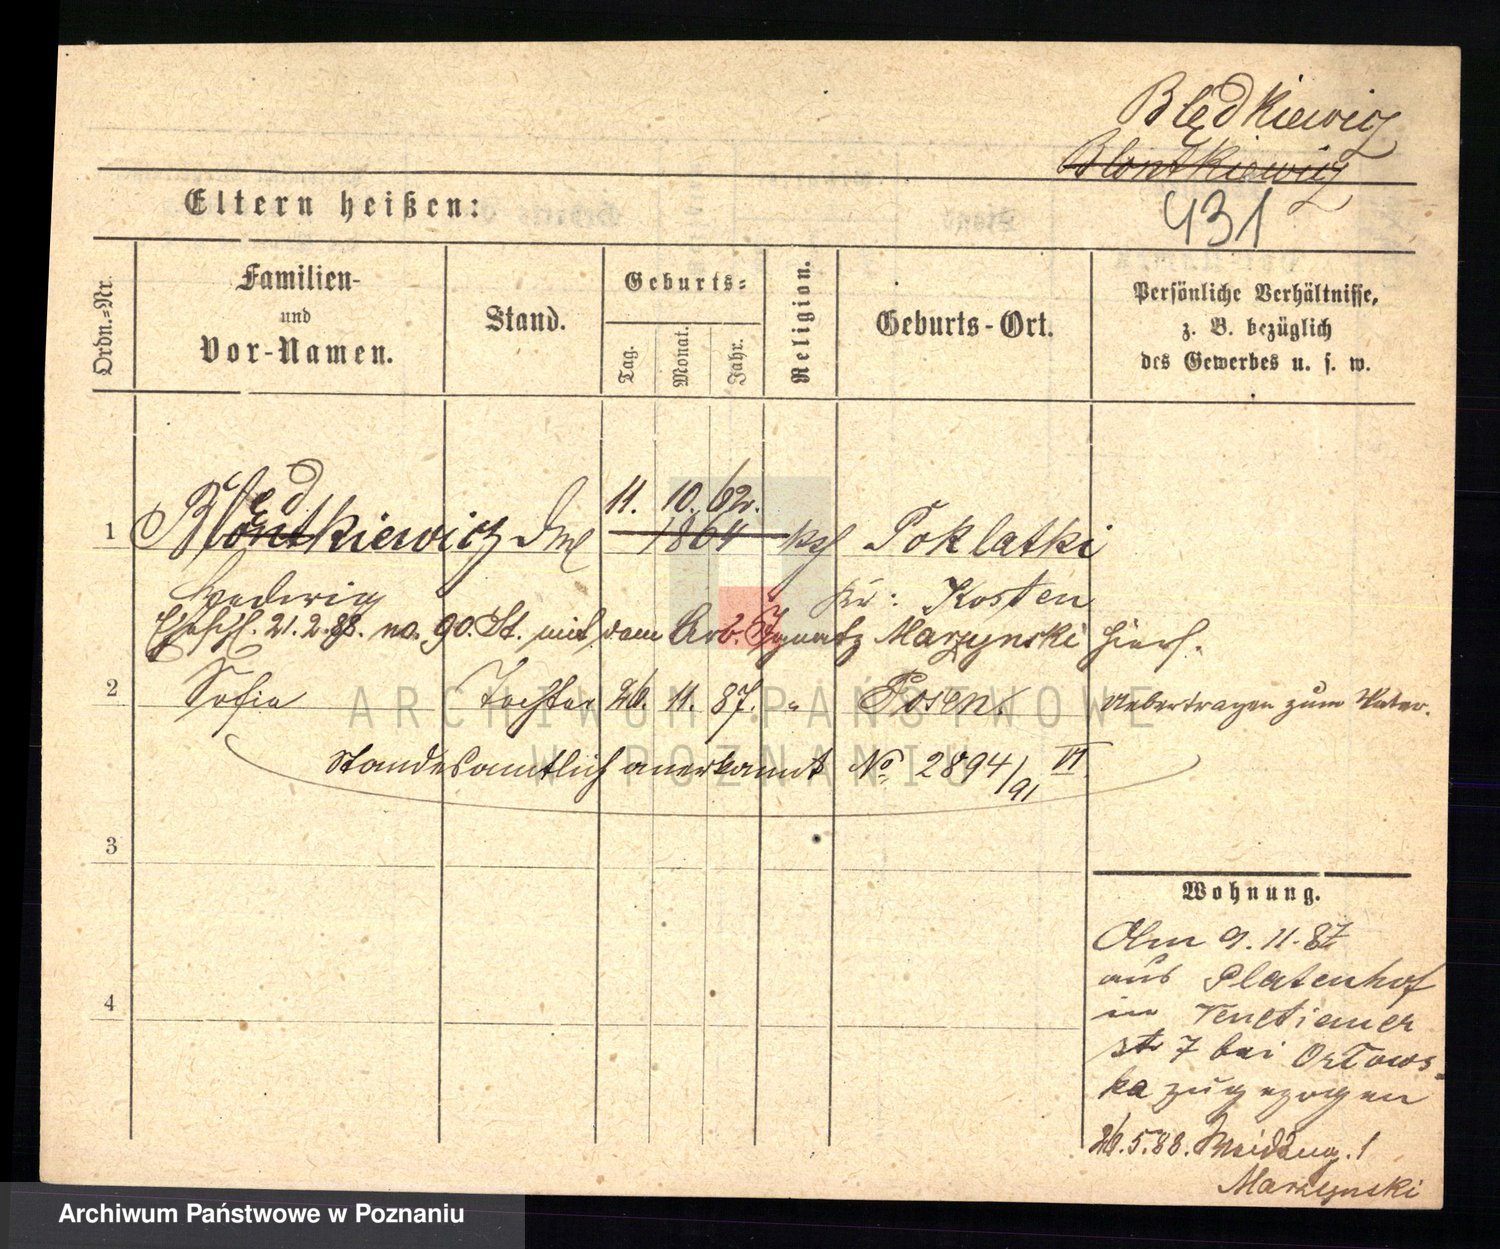 Blędkiewicz
Blontkiewicz
431
Eltern heißen:
Ordn.-Nr.
Familien-
und
Vor-Namen.
Stand.
Geburts-
Tag.
Monat.
Jahr.
Religion.
Geburts-Ort.
Persönliche Verhältnisse,
z. B. bezüglich
des Gewerbes u. s. w.
łęd 11. 10. 62.
1 Blontkiewicz 1864 Poklatki
Hedwig Kr: Kosten
21.2.88. no. 90. St. mit dem Arb. Ignatz Marzynski hiers.
2 Sofia Tochter 26. 11. 87. " Posen. Uebertragen zum Vater.
Standesamtlich anerkannt No 2894/91 VI
3
4
Wohnung.
Am 9.11.87
aus Platenhof
in Venetianer
str 7 bei Orlows-
ka zugezogen
26.5.88. 1
Marzynski
ARCHIWUM PAŃSTWOWE
W POZNANIU
Archiwum Państwowe w Poznaniu